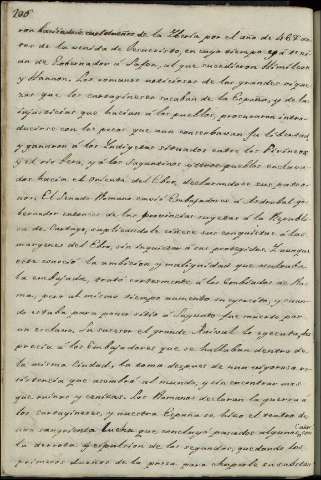 206
ron haciendose cuasi dueños de la Iberia por el año de 468 an-
tes de la venida de Jesucristo, en cuyo tiempo era
de Gobernador á Safon, al que sucedieron Himilcon
y Hannon. Los romanos noticiosos de las grandes rique-
zas que los cartagineses sacaban de la España, y de las
injusticias que hacian á los pueblos, procuraron intro-
ducirse con los pocos que aun conservaban su libertad
y ganaron á los Indigetes situados entre los Pirineos
y el rio Tera, y á los Saguntinos y otros pueblos enclava-
dos hacia el Oriente del Ebro, declarandose sus patro-
nos. El Senado Romano envió Embajadores á Asdrubal go-
bernador entonces de las provincias sujetas á la Republi-
ca de Cartago, suplicandole ciñese sus conquistas á las
margenes del Ebro, sin inquietar á sus protegidos. Aunque
este conoció la ambicion y malignidad que ocultaba
la embajada, trató cortesmente á los Embiados de Ro-
ma, pero al mismo tiempo aumentó su egercito, y cuan-
do estaba para poner sitio á Sagunto fue muerto por
un esclavo. Su sucesor el grande Anibal lo egecuto, des-
precia á los Embajadores que se hallaban dentro de
la misma Ciudad, la toma despues de una vigorosa re-
sistencia que asombró al mundo, y sin encontrar mas
que ruinas y cenizas. Los Romanos declaran la guerra á
los cartagineses, y nuestra España se hizo el teatro de
una sangrienta lucha que concluyó pasados algunos años, con
la derrota y espulsion de los segundos, quedando los
primeros dueños de la presa, para chuparle la substan